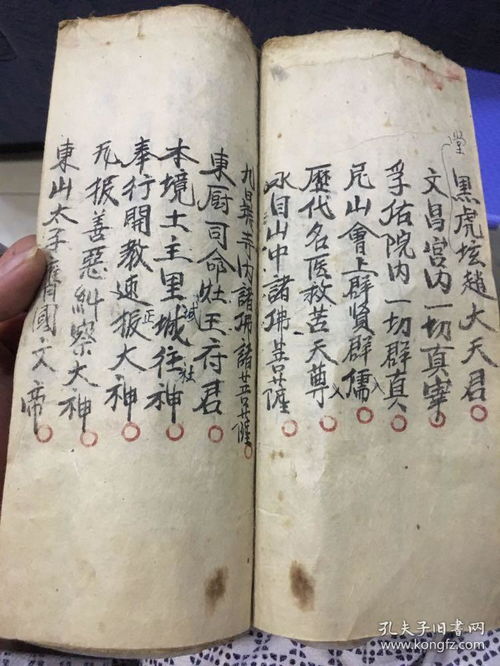 黑虎坛趙大天君
堂
文昌宮内一切真宰
孚佑院内一切群真
尼山會上群賢群儒
歷代名医救苦天尊
氷目山中諸佛菩薩
九最寺内諸佛諸菩薩
東厨司命灶王府君
本境土主里城社神
正
奉行開教速报大神
无报善惡糾察大神
東山太子濟國文帝
孔夫子旧书网
www.kongfz.com